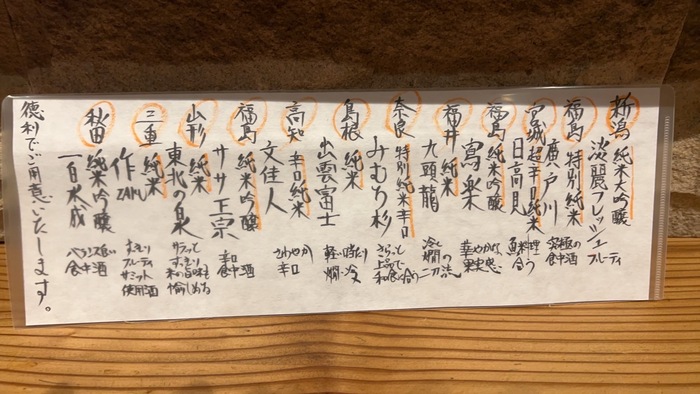 新潟 純米大吟醸
淡麗フレッシュ
フルーティ
福島 特別純米
廣戸川
究極の
食中酒
宮城 超辛口純米
日高見
魚料理
合う
福島 純米吟醸
寫楽
華やかな
果実感
福井 純米
九頭龍
冷と
燗の
二刀流
奈良 特別純米辛口
みむろ杉
さらっと
上品で
和食に合う
島根 純米
出雲富士
軽い時だり
燗・冷
高知 辛口純米
文佳人
さわやか
辛口
福島 純米吟醸
ササ正宗
辛口
食中酒
山形 純米
東北の泉
サラッと
すっきり
米の旨味も
愉しめる
三重 純米
作 ZAKU
すっきり
フルーティ
サミット
使用酒
秋田 純米吟醸
一白水成
バランス良い
食中酒
徳利でご用意いたします。